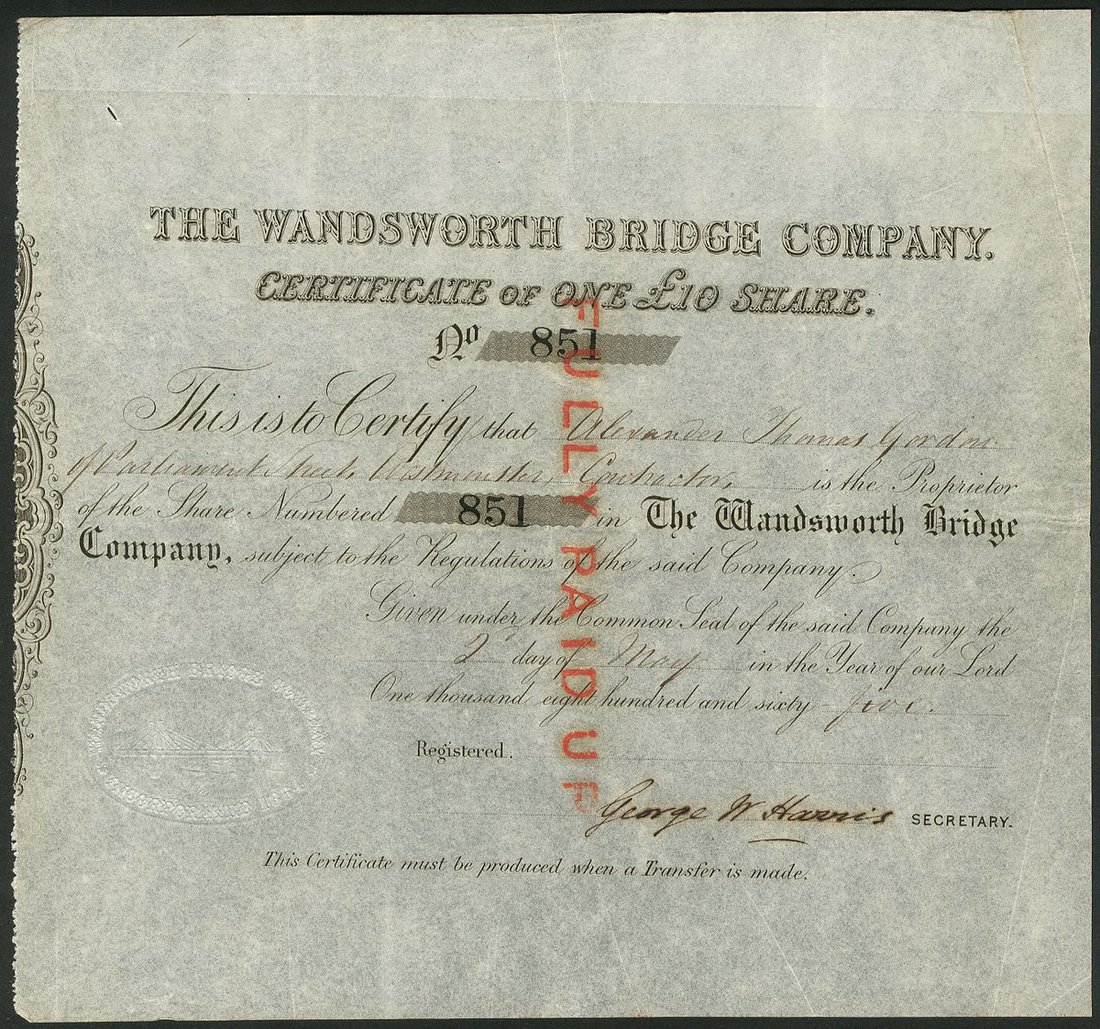 THE WANDSWORTH BRIDGE COMPANY.
CERTIFICATE OF ONE £10 SHARE.
No 851
This is to Certify that Alexander Thomas Gordon
of Parliament Street, Westminster, Contractor, is the Proprietor
of the Share Numbered 851 in The Wandsworth Bridge
Company, subject to the Regulations of the said Company.
Given under the Common Seal of the said Company the
2d day of May in the Year of our Lord
One thousand eight hundred and sixty five.
Registered.
George W Harris SECRETARY.
This Certificate must be produced when a Transfer is made.
FULLY PAID UP